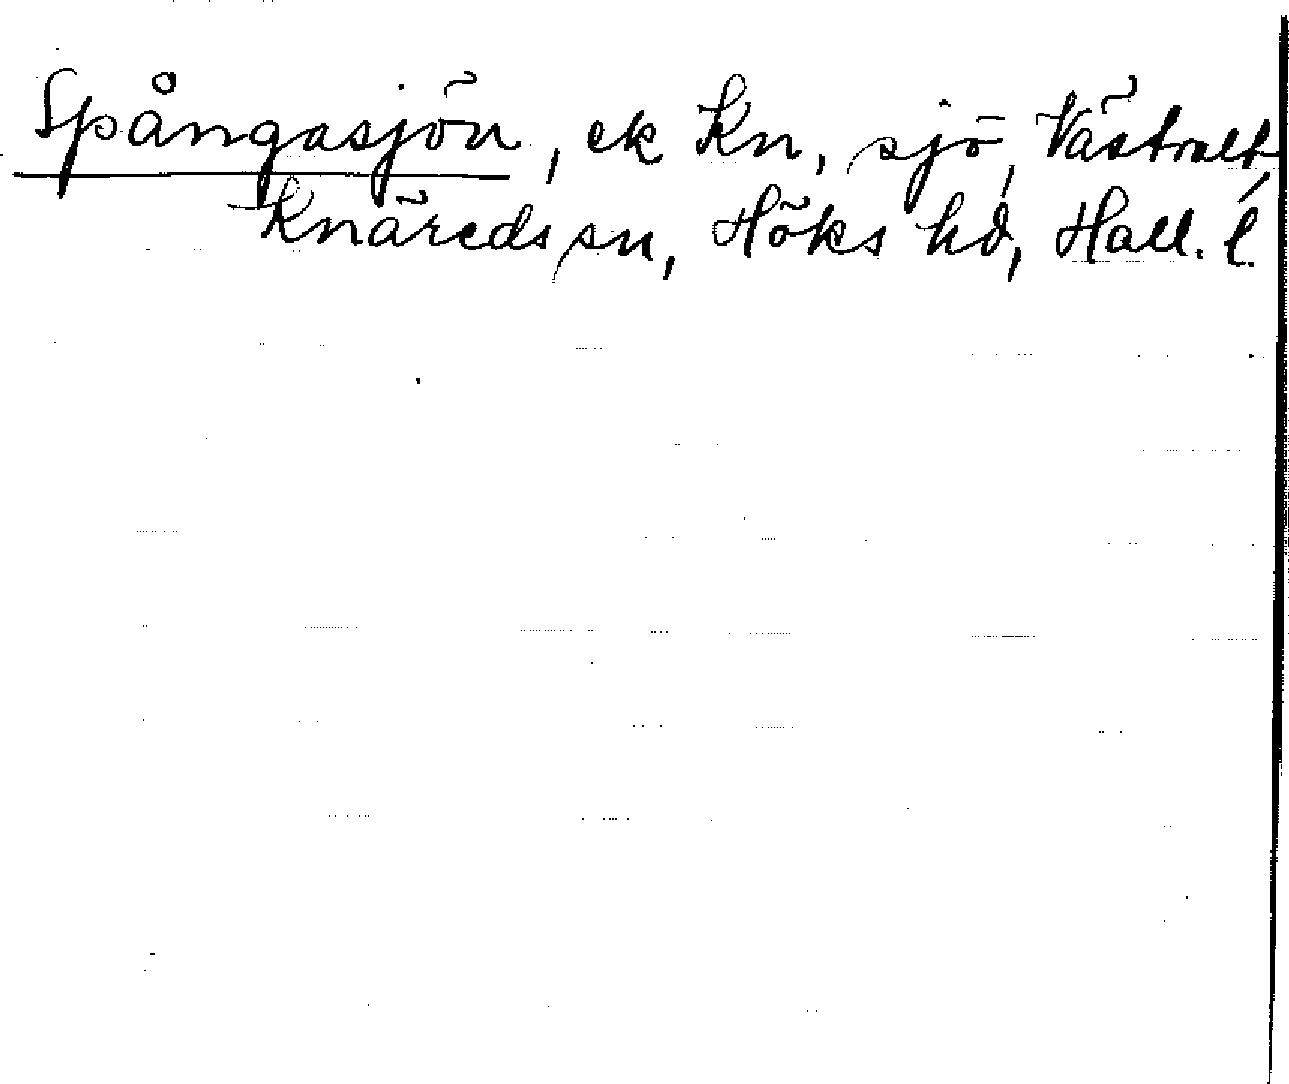 Spångasjön, ek Kn, sjö, Västralt,
Knäreds sn, Höks hd, Hall. l.